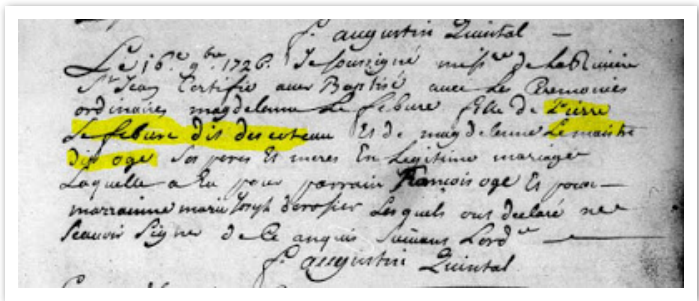 f. augustin Quintal
Le 16e 9bre 1726. Je soussigné miss.re de la Riviere
St Jean Certifie avoir Baptisé avec les Ceremonies
ordinaires magdelenne Le febure fille de Pierre
Le febure dit descoteau Et de magdelenne Lemaitre
dit oge Ses peres Et meres En Legitime mariage
Laquelle a Eu pour parrain François oge Et pour
marrainne marie Joseph derosier Lesquels ont declaré ne
Scavoir Signer de Ce anquis Suivans Lord.ce
f. augustin Quintal